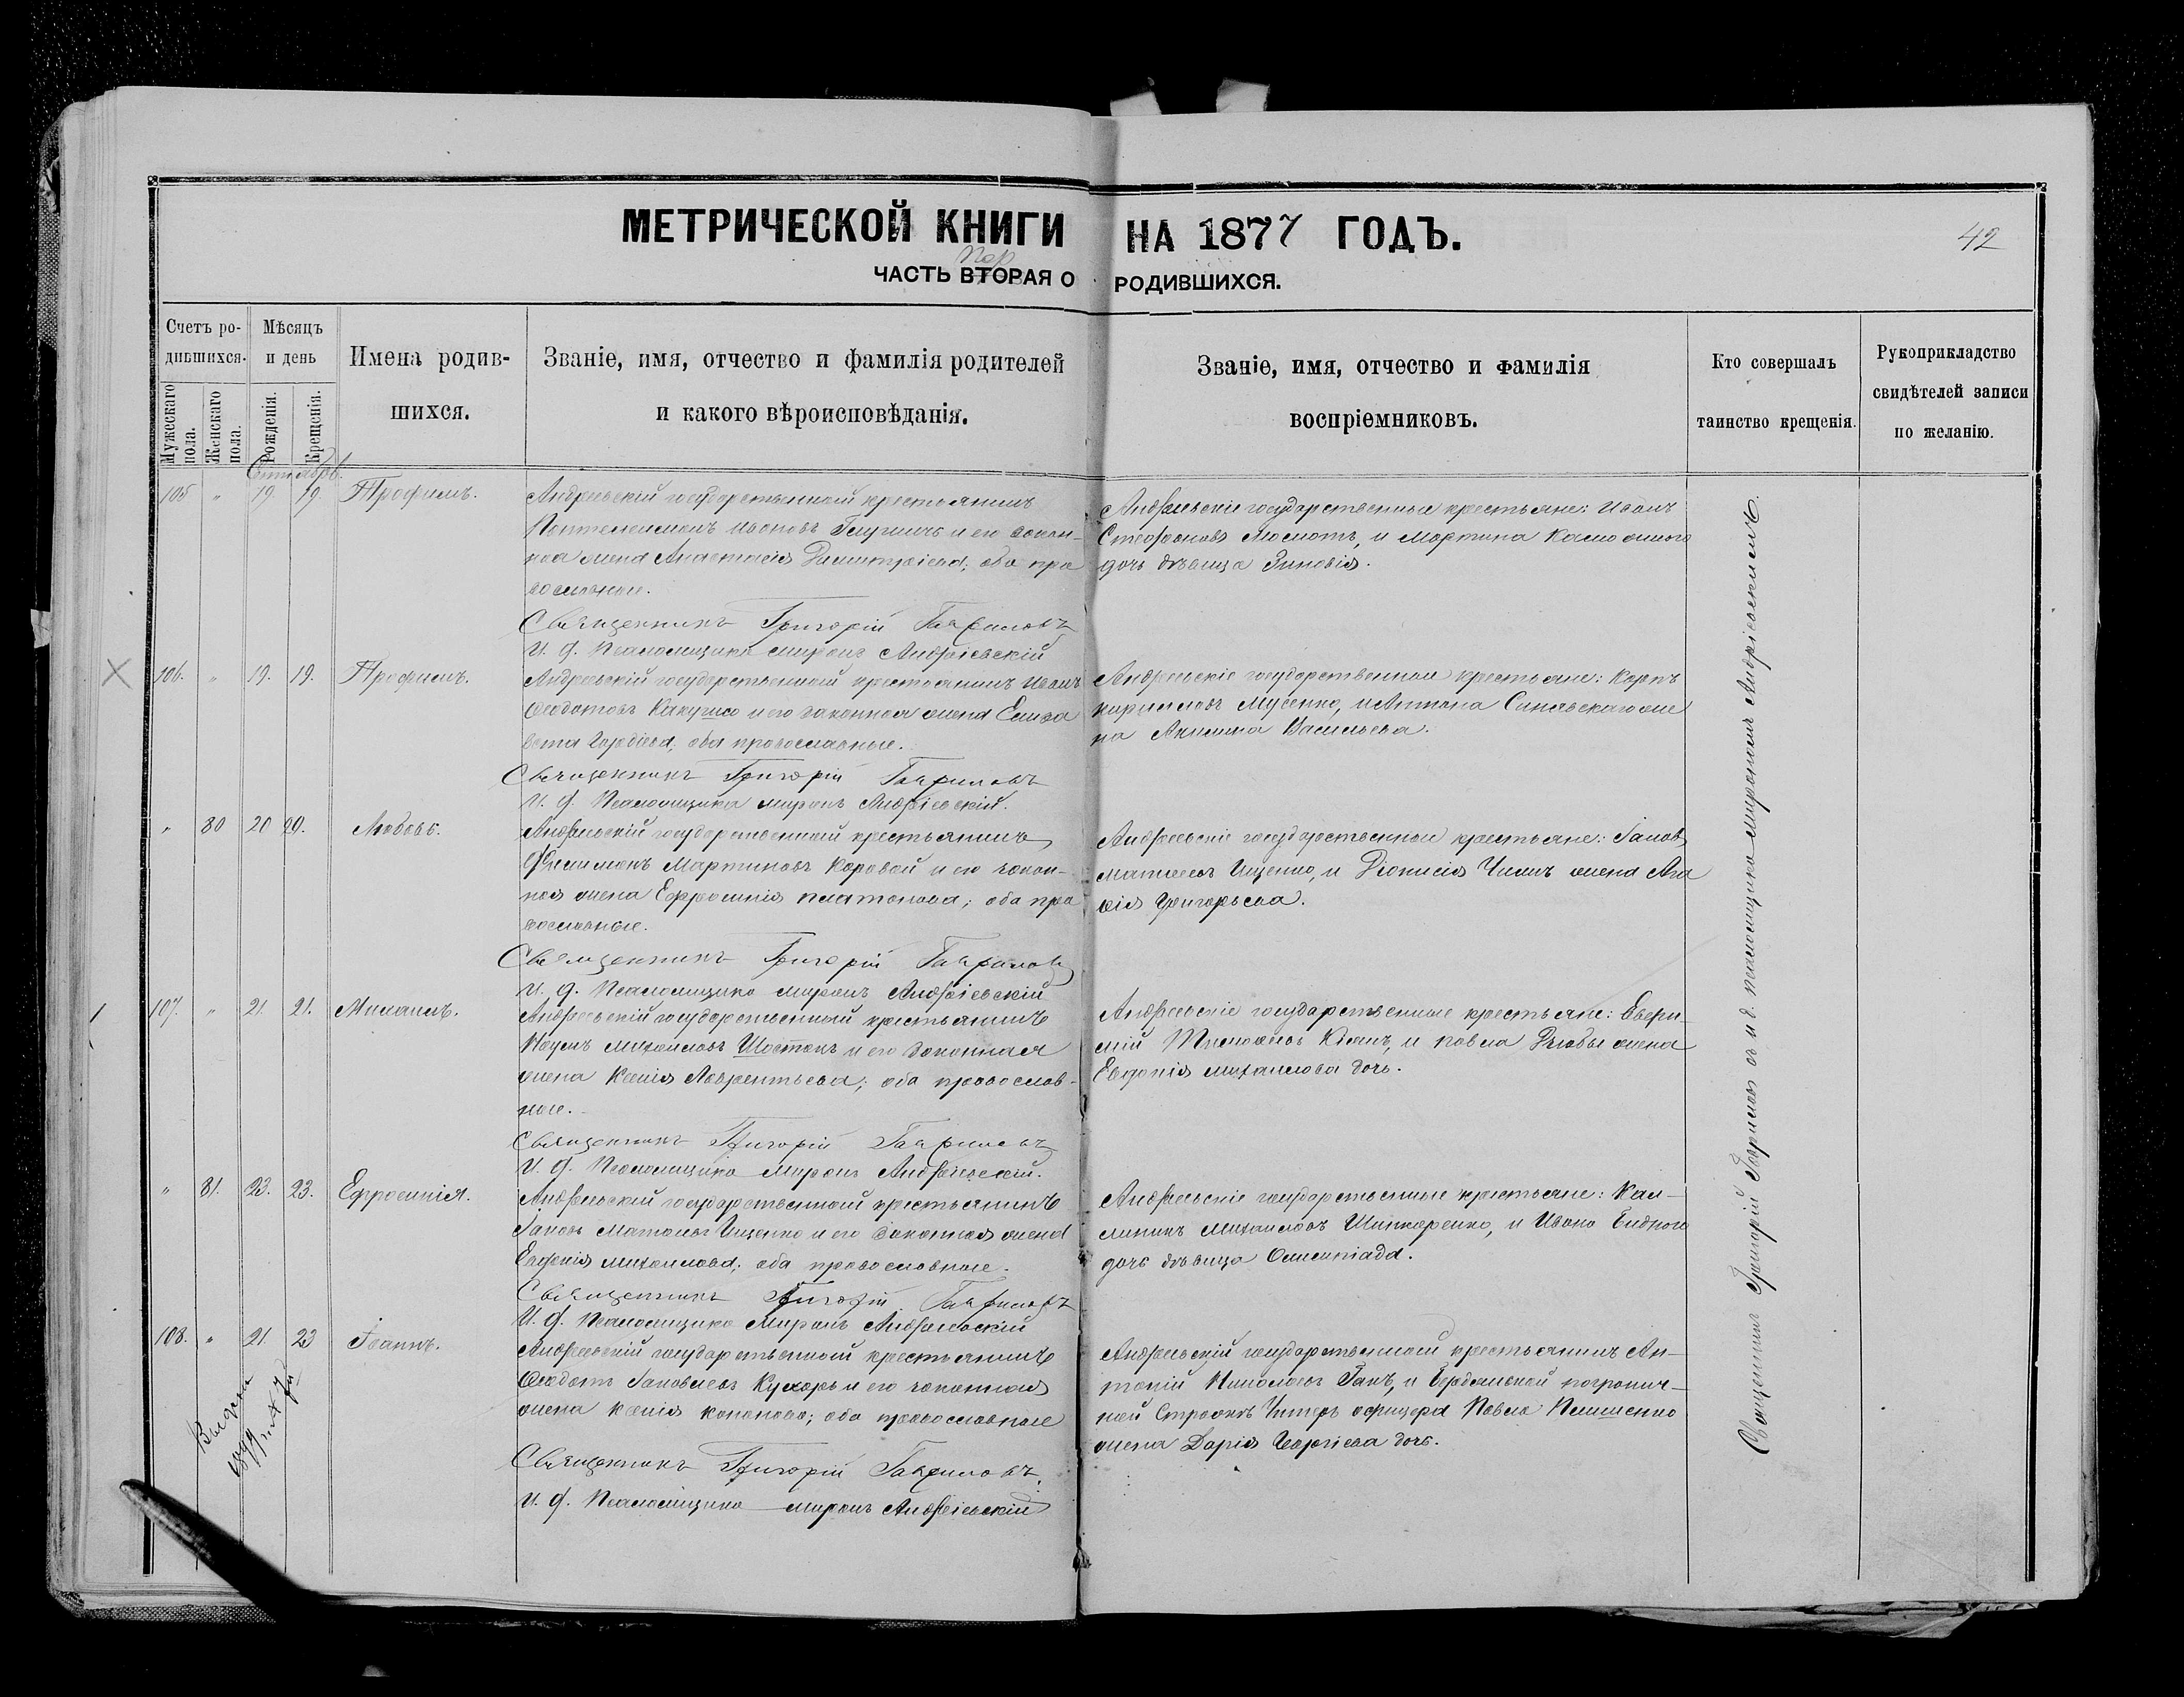 МЕТРИЧЕСКОЙ КНИГИ НА 1877 ГОДЪ.
42
ЧАСТЬ ВТОРАЯ О РОДИВШИХСЯ.
Счетъ ро-
дившихся.
Мужескаго пола.
Женскаго пола.
Мѣсяцъ
и день
Рожденія.
Крещенія.
Имена родив-
шихся.
Званіе, имя, отчество и фамилія родителей
и какого вѣроисповѣданія.
Званіе, имя, отчество и фамилія
воспріемниковъ.
Кто совершалъ
таинство крещенія.
Рукоприкладство
свидѣтелей записи
по желанію.
105 " 19 19. Трофимъ.
Андреевскій государственный крестьянинъ
Пантелеимонъ Ивановъ и его закон-
ная жена Анастасія Димитріева; оба пра
вославные.
Священникъ Григорій Гавриловъ
И. д. Псаломщика Миронъ Андріевскій
Андреевскіе государственные крестьяне: Иванъ
Стефановъ и Мартина
дочь дѣвица Зиновія.
106. " 19. 19. Трофимъ.
Андреевскій государственный крестьянинъ Иванъ
Феодотовъ и его законная жена Елиза
вета Гордіева; оба православные.
Священникъ Григорій Гавриловъ
И. д. Псаломщика Миронъ Андріевскій.
Андреевскіе государственные крестьяне: Карпъ
Кирилловъ Мусенко, и Антона Синявскаго же
на Акилина Васильева.
" 80 20 20. Любовь.
Андреевскій государственный крестьянинъ
Филимонъ Мартиновъ Коровай и его закон-
ная жена Ефросинія Платонова; оба пра
вославные.
Священникъ Григорій Гавриловъ
И. д. Псаломщика Миронъ Андріевскій
Андреевскіе государственные крестьяне: Іаковъ
Матвеевъ Ищенко, и Діонисія жена Ага
фія Григорьева.
107. " 21. 21. Михаилъ.
Андреевскій государственный крестьянинъ
Наумъ Михаиловъ Шостакъ и его законная
жена Ксенія Лаврентьева; оба православ-
ные.
Священникъ Григорій Гавриловъ
И. д. Псаломщика Миронъ Андріевскій.
Андреевскіе государственные крестьяне:
и Павла Дзюбы жена
Евдокія Михаилова дочь.
" 81. 23. 23. Ефросинія.
Андреевскій государственный крестьянинъ
Іаковъ Матвеевъ Ищенко и его законная жена
Евдокія Михаилова; оба православные.
Священникъ Григорій Гавриловъ
И. д. Псаломщика Миронъ Андріевскій
Андреевскіе государственные крестьяне: Кал-
линикъ Михаиловъ Шинкаренко, и Ивана
дочь дѣвица Олимпіада.
108. " 21 23 Іоаннъ.
Андреевскій государственный крестьянинъ
Феодотъ Іаковлевъ Кухарь и его законная
жена Ксенія Кононова; оба православные
Священникъ Григорій Гавриловъ.
И. д. Псаломщика Миронъ Андріевскій
Андреевскій государственный крестьянинъ Ан-
тоній Николаевъ Ганъ, и Бердянской погранич-
ной Стражи Унтеръ офицера Павла
жена Дарія Георгіева дочь.
Священникъ Григорій Гавриловъ съ и. д. псаломщика Мирономъ Андріевскимъ.